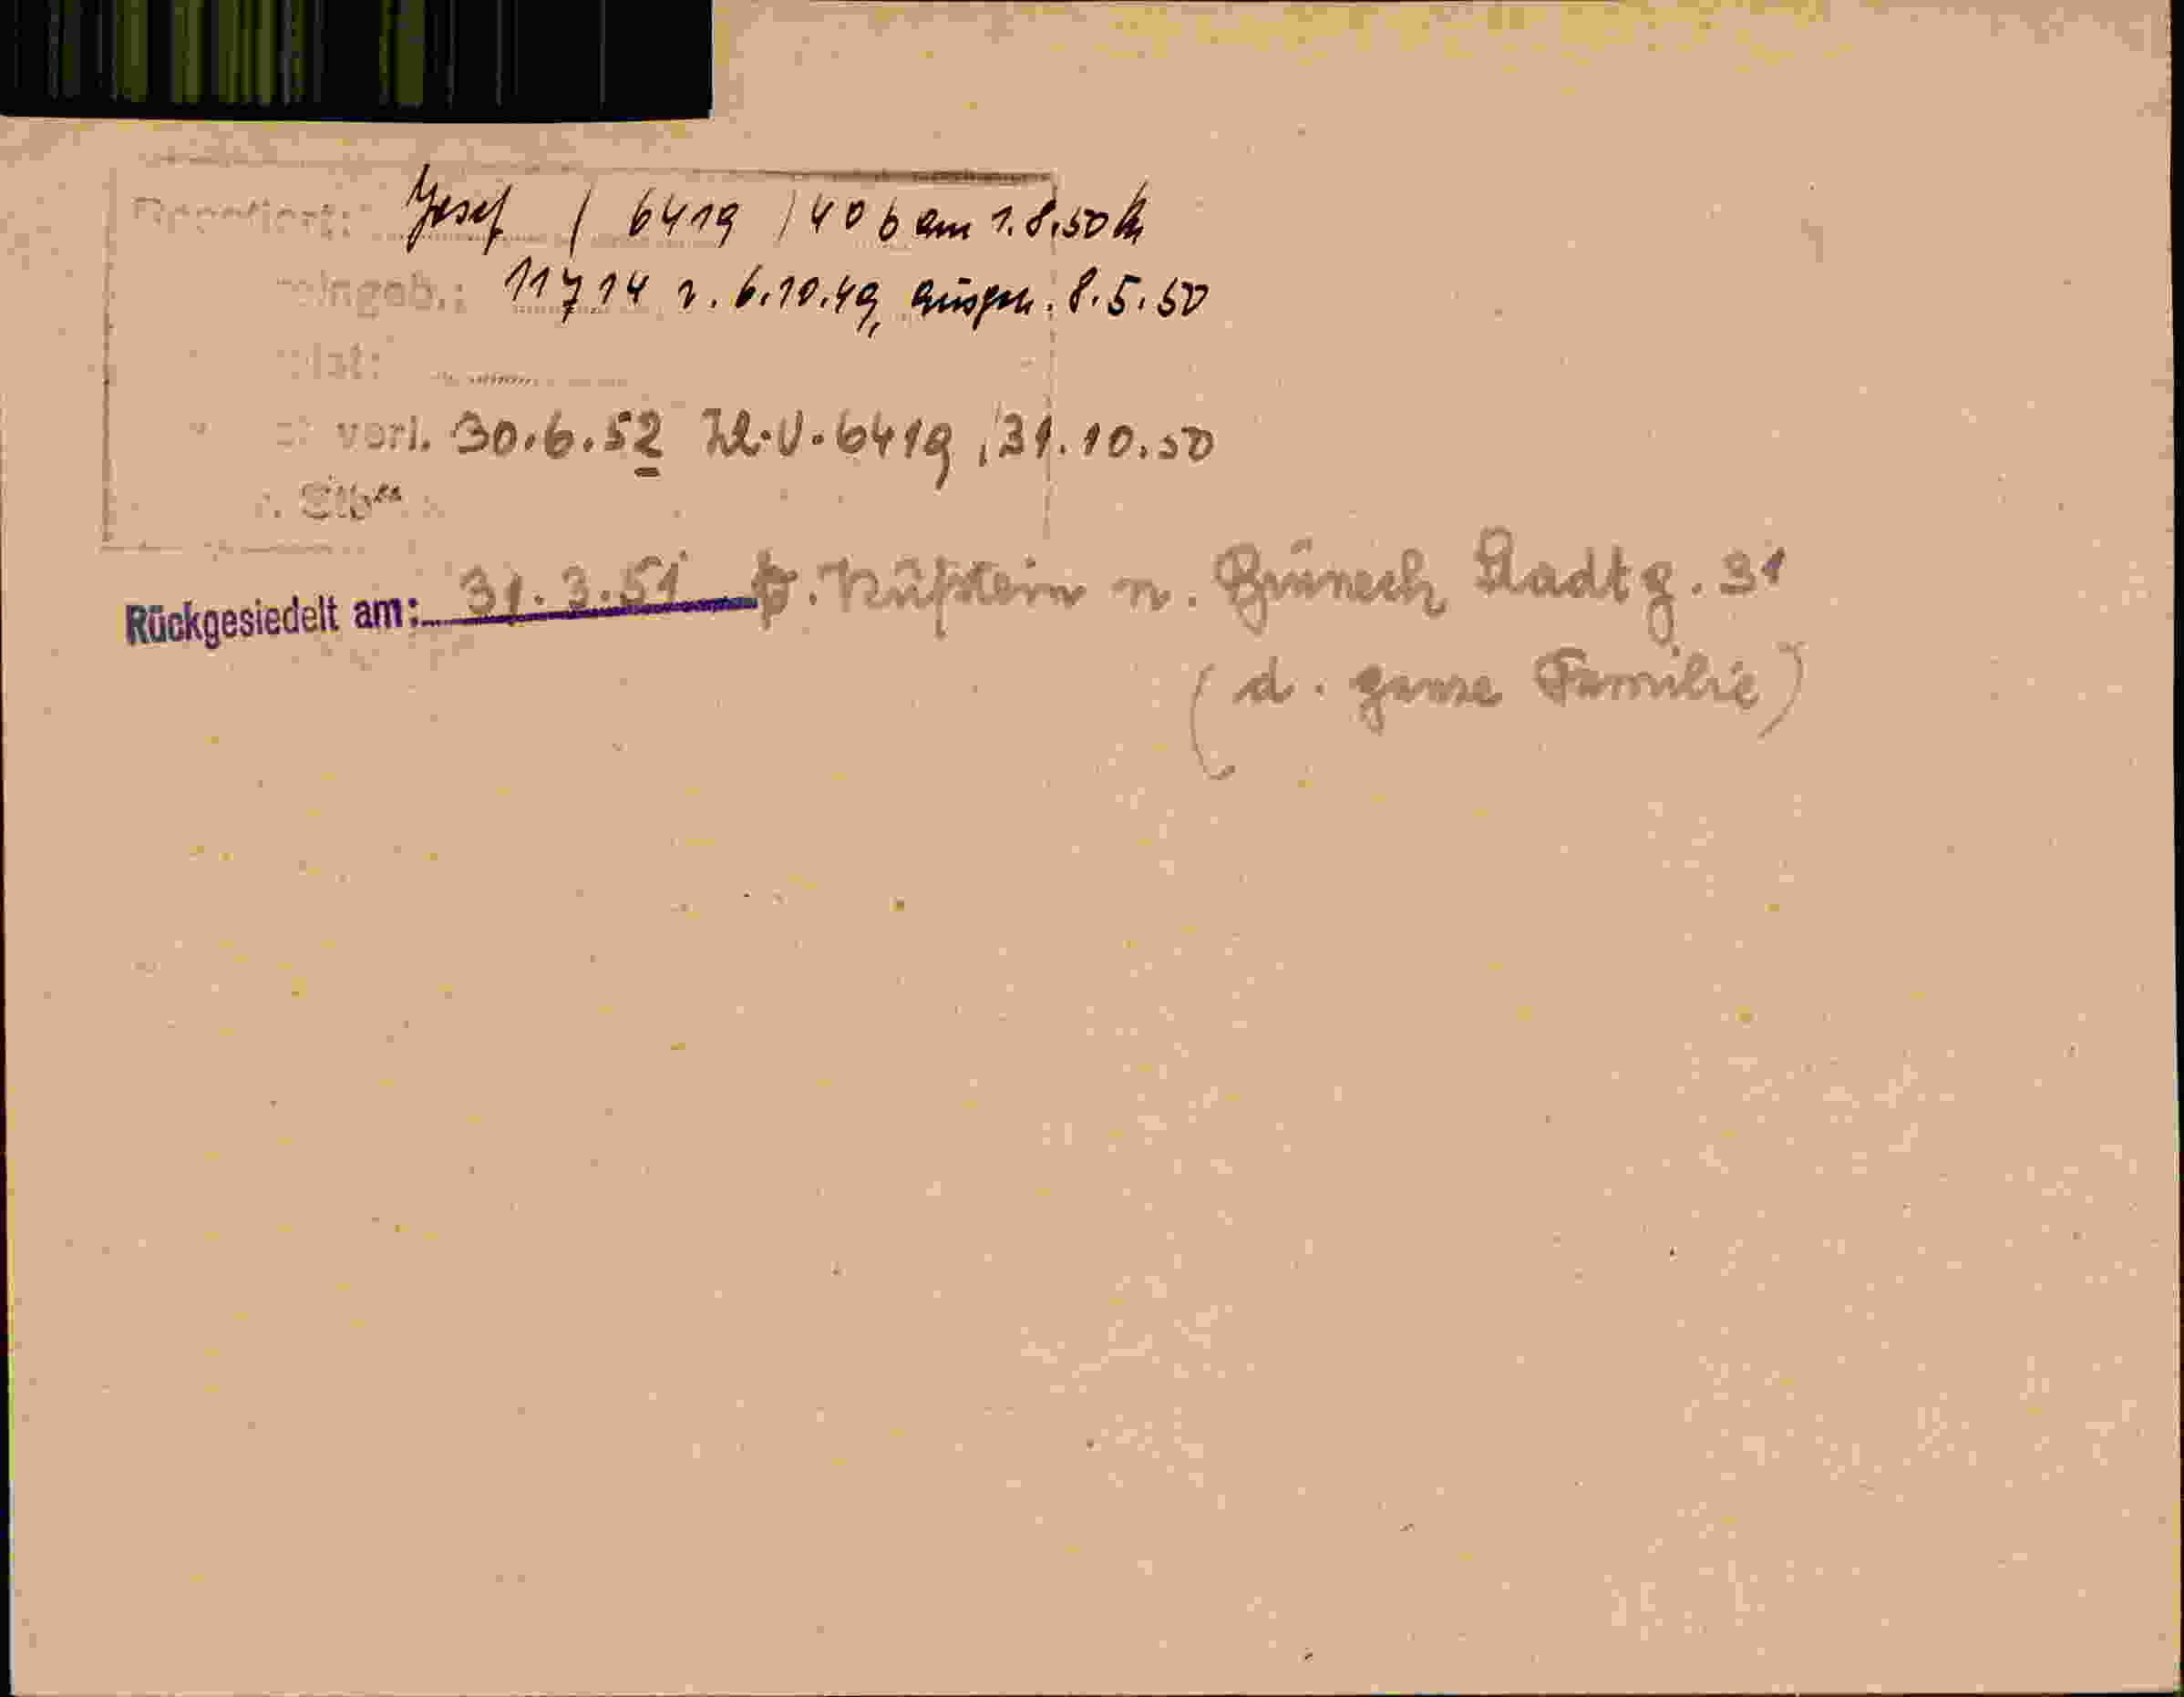 Josef / 6419 / 406 am 1.8.50
ingeb.: 11714 v. 6.10.49, ausgeh. 8.5.50
verl. 30.6.52 Zl.V.6419, 31.10.50
Rückgesiedelt am: 31.3.51 Kufstein n. Bruneck Stadtg. 31
(d. ganze Familie)